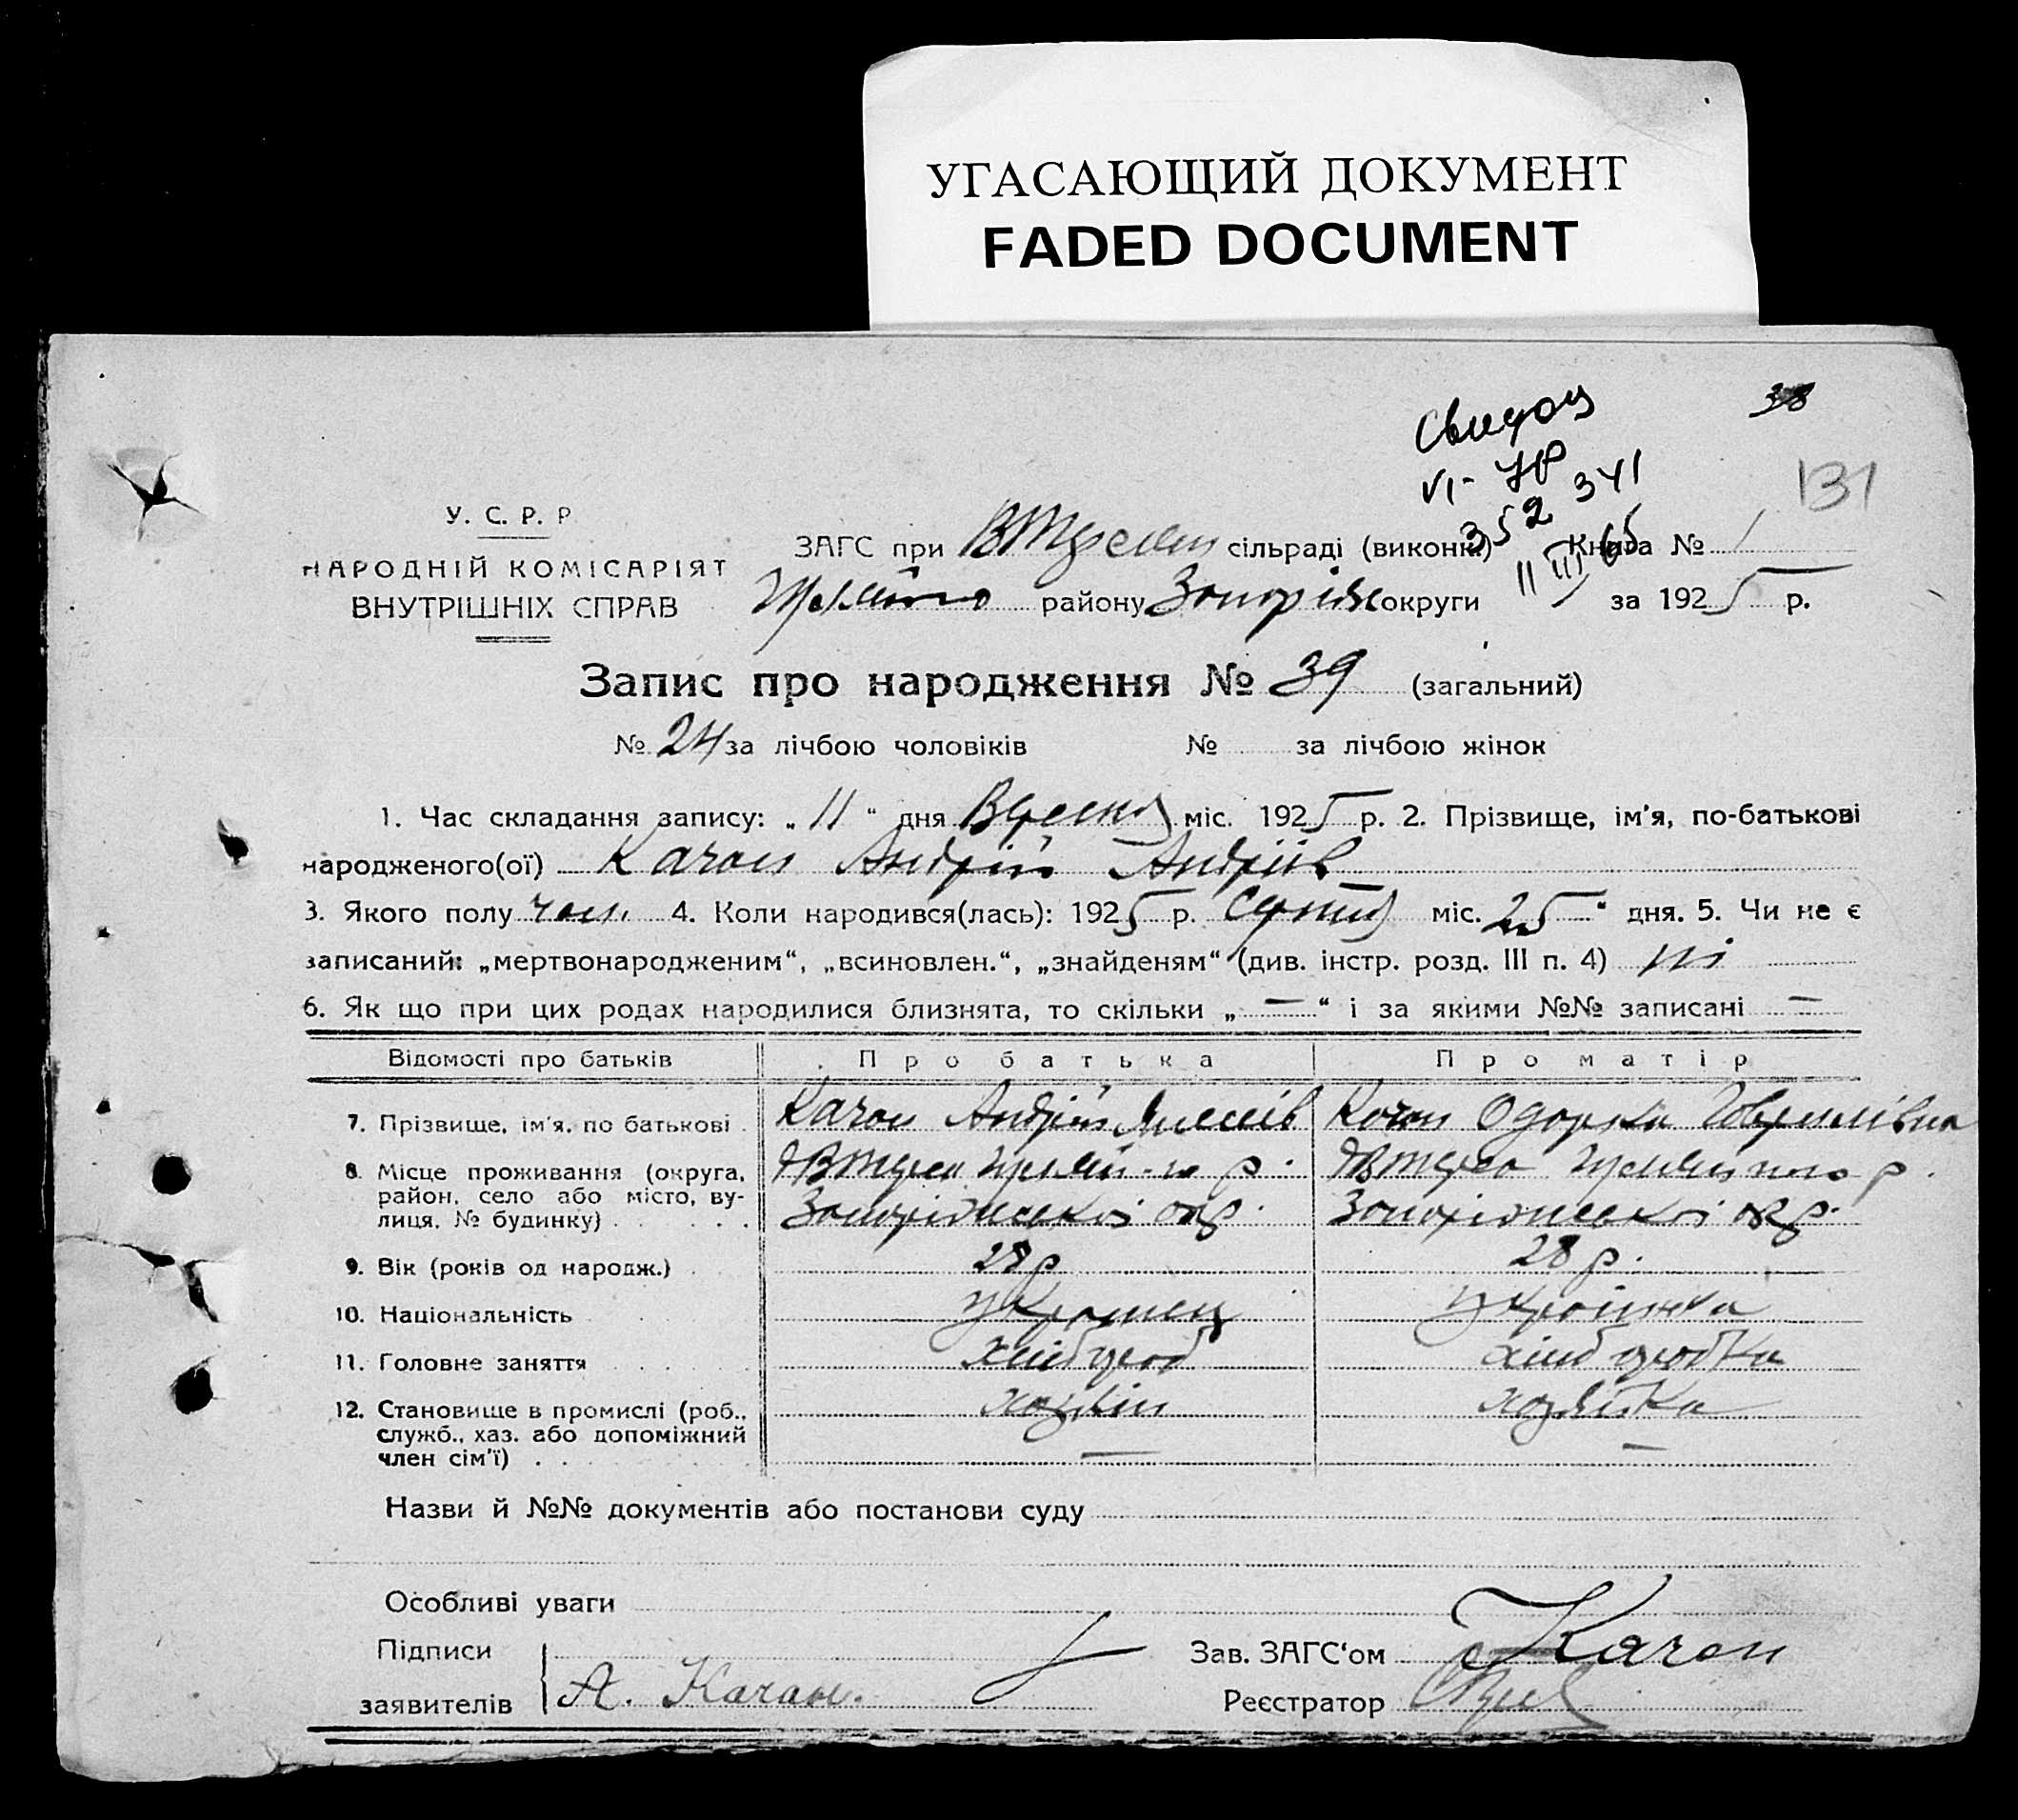 УГАСАЮЩИЙ ДОКУМЕНТ
FADED DOCUMENT
38
131
У. С. Р. Р.
НАРОДНІЙ КОМІСАРІЯТ
ВНУТРІШНІХ СПРАВ
352 341
11 III 65
ЗАГС при сільраді (виконк.) Книга № 1
району Запоріж округи за 1925 р.
Запис про народження № 39 (загальний)
№ 24 за лічбою чоловіків № за лічбою жінок
1. Час складання запису: „11“ дня Вресня міс. 1925 р. 2. Прізвище, ім'я, по-батькові
народженого(ої) Качан Андрій Андріїв
3. Якого полу чол. 4. Коли народився(лась): 1925 р. Серпня міс. 25“ дня. 5. Чи не є
записаний: „мертвонародженим“, „всиновлен.“, „знайденям“ (див. інстр. розд. III п. 4) ні
6. Як що при цих родах народилися близнята, то скільки „—“ і за якими №№ записані —
Відомості про батьків Про батька Про матір
7. Прізвище, ім'я, по батькові Качан Андрій Качан Одарка Гаврилівна
8. Місце проживання (округа,
район, село або місто, ву-
лиця, № будинку) Запоріжської окр. Запоріжської окр.
9. Вік (років од народж.) 28 р 28 р.
10. Національність Українец Українка
11. Головне заняття хлібороб хліборобка
12. Становище в промислі (роб.,
служб., хаз. або допоміжний
член сім'ї) хозяїн хозяйка
Назви й №№ документів або постанови суду
Особливі уваги
Підписи
заявителів А. Качан.
Зав. ЗАГС'ом Качан
Реєстратор